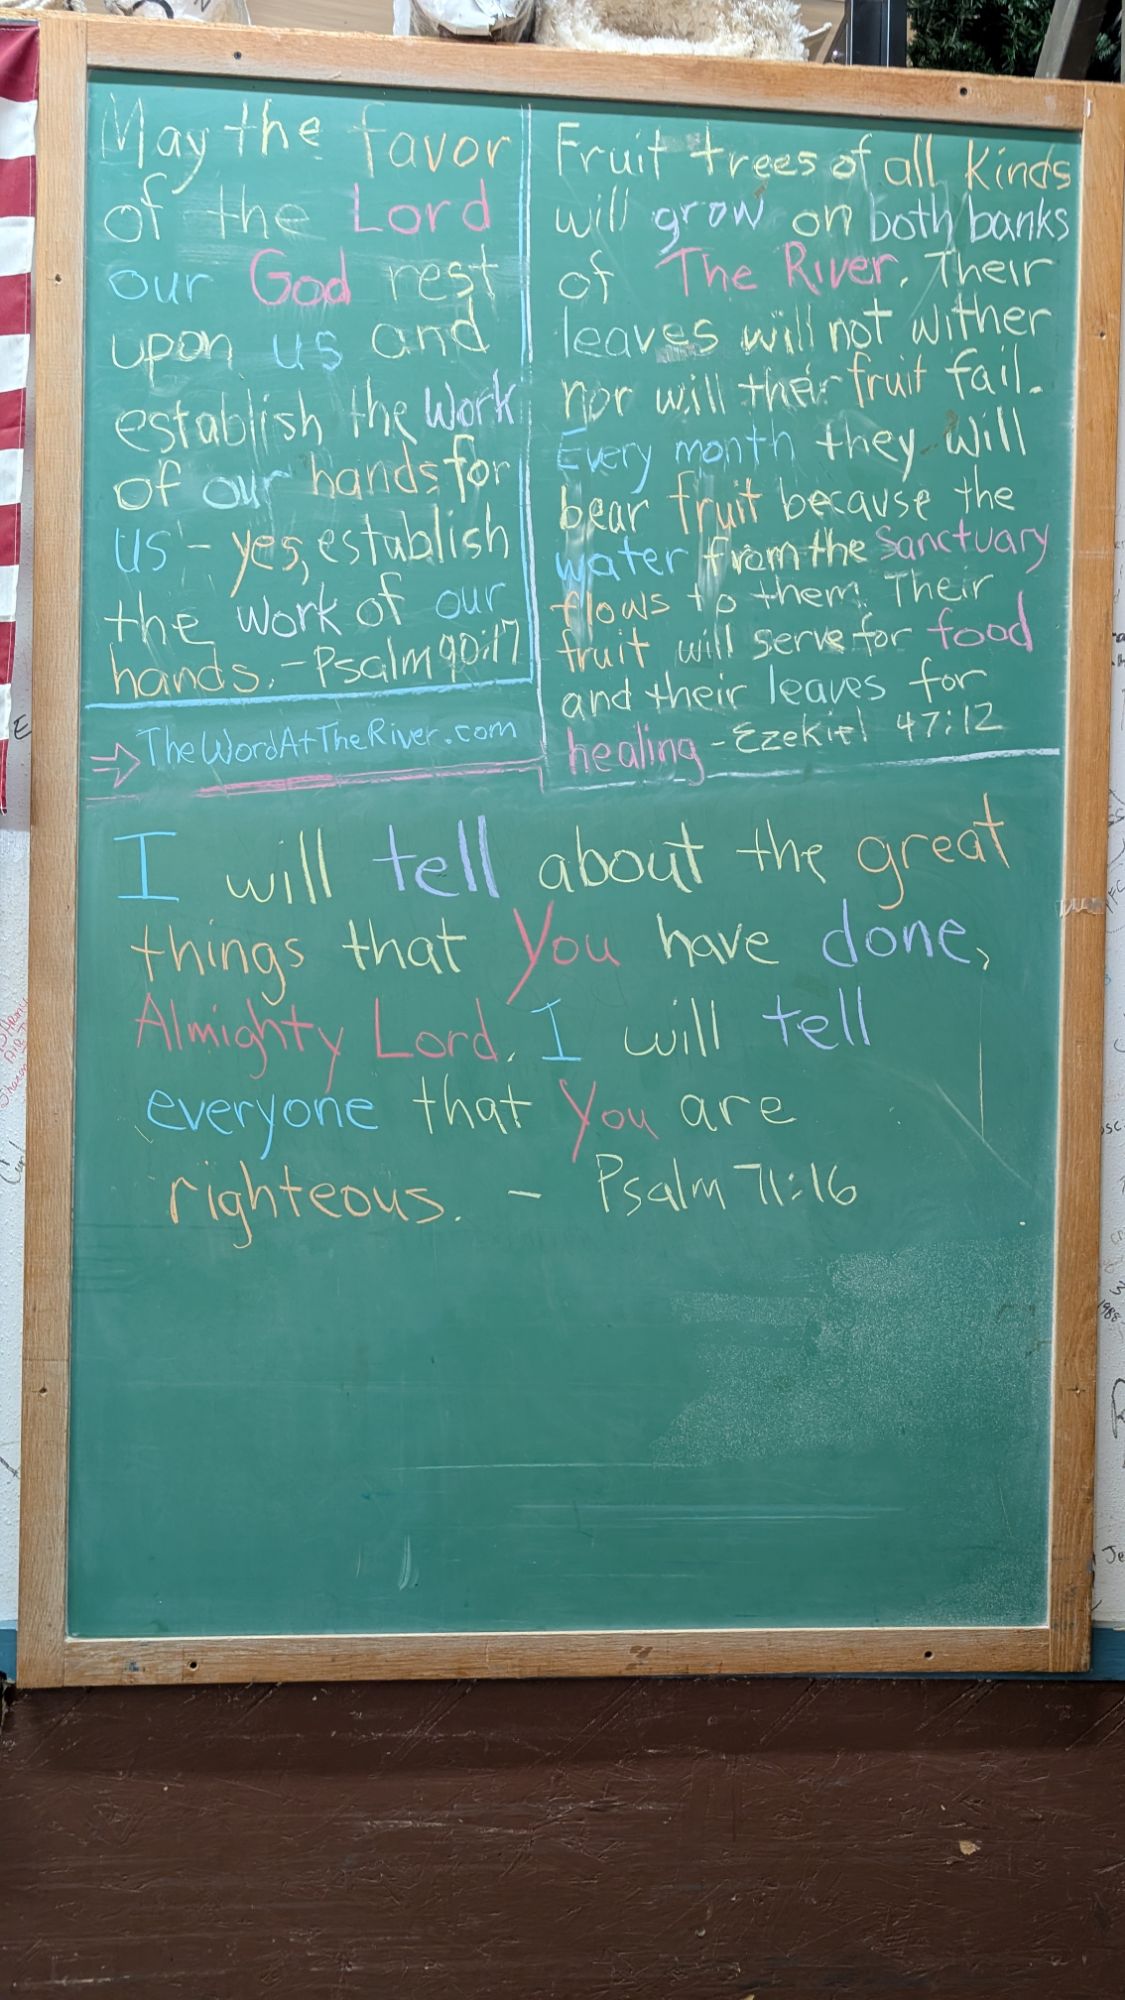 May the favor
of the Lord
our God rest
upon us and
establish the work
of our hands for
us - yes, establish
the work of our
hands. - Psalm 90:17
TheWordAtTheRiver.com
Fruit trees of all kinds
will grow on both banks
of The River. Their
leaves will not wither
nor will their fruit fail.
Every month they will
bear fruit because the
water from the Sanctuary
flows to them. Their
fruit will serve for food
and their leaves for
healing - Ezekiel 47:12
I will tell about the great
things that You have done,
Almighty Lord. I will tell
everyone that You are
righteous. - Psalm 71:16